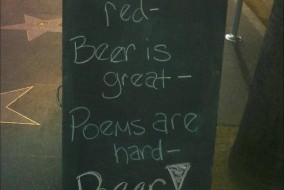 red-
Beer is
great-
Poems are
hard-
Beer!